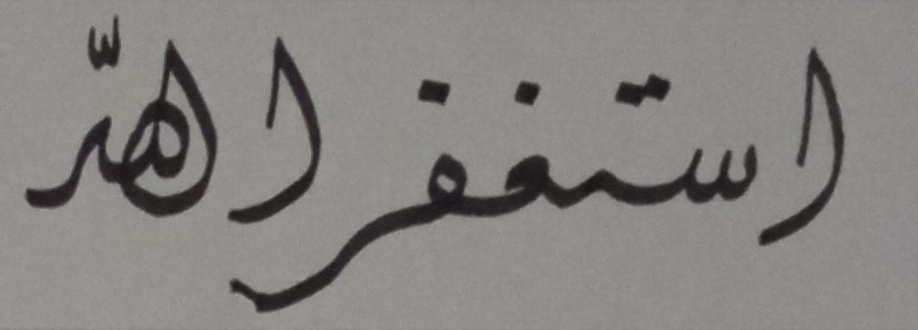 استغفر اللهّ